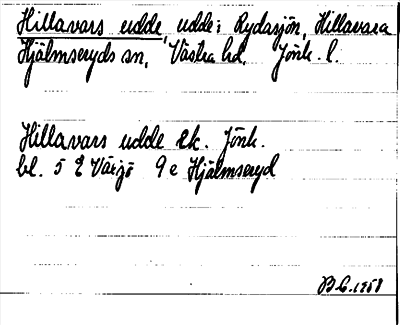 Hillavars udde, udde i Rydasjön, Hillavara
Hjälmseryds sn, Västra hd. Jönk. l.
Hillavars udde ek. Jönk.
bl. 5 E Värjö 9 e Hjälmseryd
B.L. 1958